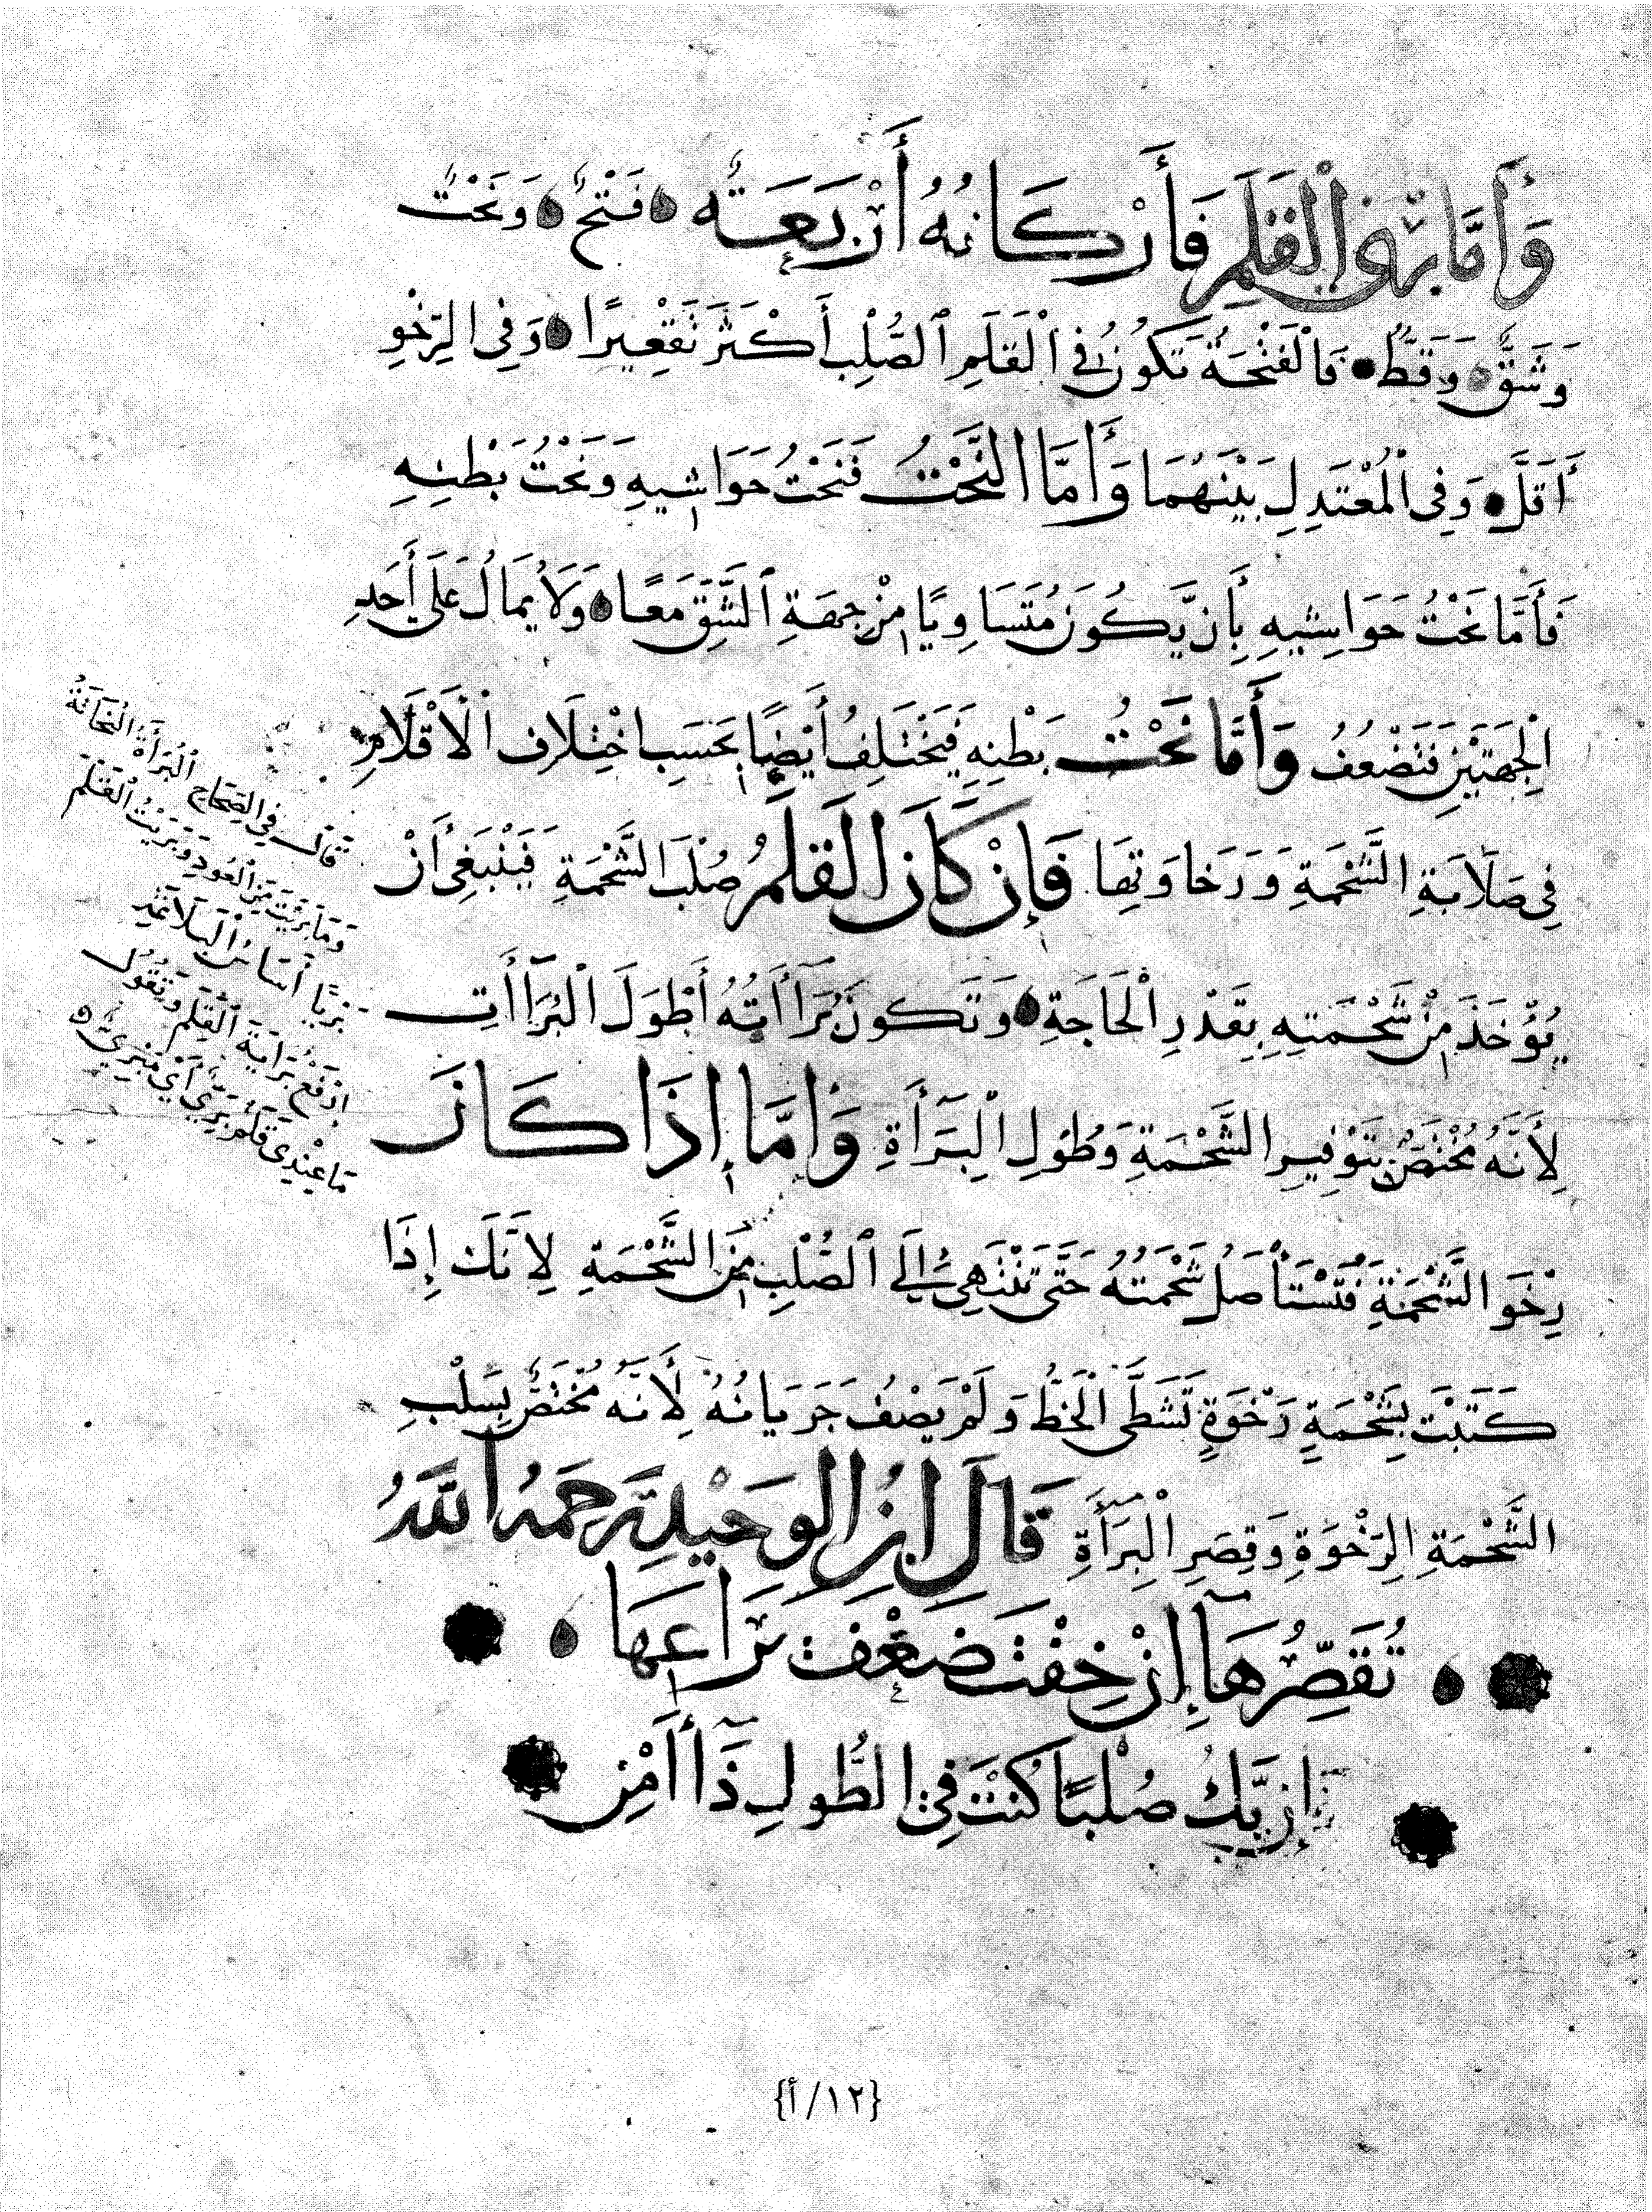 وَأَمَّا بَرْيُ الْقَلَمِ فَأَرْكَانُهُ أَرْبَعَةٌ فَتْحٌ وَنَحْتٌ
وَشَقٌّ وَقَطٌّ فَالْفَتْحَةُ تَكُونُ فِي الْقَلَمِ الصُّلْبِ أَكْثَرَ تَقْعِيرًا وَفِي الرِّخْوِ
أَقَلَّ وَفِي الْمُعْتَدِلِ بَيْنَهُمَا وَأَمَّا النَّحْتُ فَنَحْتُ حَوَاشِيهِ وَنَحْتُ بَطْنِهِ
فَأَمَّا نَحْتُ حَوَاشِيهِ بِأَن يَّكُونَ مُتَسَاوِيًا مِنْ جِهَةِ الشَّقِّ مَعًا وَلَا يُمَالُ عَلَى أَحَدِ
الْجِهَتَيْنِ فَتَضْعُفُ وَأَمَّا نَحْتُ بَطْنِهِ فَيَخْتَلِفُ أَيْضًا بِحَسَبِ اخْتِلَافِ الْأَقْلَامِ
فِي صَلَابَةِ الشَّحْمَةِ وَرَخَاوَتِهَا فَإِنْ كَانَ الْقَلَمُ صُلْبَ الشَّحْمَةِ فَيَنْبَغِي أَنْ
يُؤْخَذَ مِنْ شَحْمَتِهِ بِقَدْرِ الْحَاجَةِ وَتَكُونَ بَرَاأَتُهُ أَطْوَلَ الْبَرَاأَاتِ
لِأَنَّهُ مُخْتَصٌّ بِتَوْفِيرِ الشَّحْمَةِ وَطُولِ الْبَرَأَةِ وَأَمَّا إِذَا كَانَ
رَخْوَ الشَّحْمَةِ فَتُسْتَأْصَلُ شَحْمَتُهُ حَتَّى تَنْتَهِيَ إِلَى الصُّلْبِ مِنَ الشَّحْمَةِ لِأَنَّكَ إِذَا
كَتَبْتَ بِشَحْمَةٍ رَخْوَةٍ تَشَظَّى الْخَطُّ وَلَمْ يَصْفُ جَرَيَانُهُ لِأَنَّهُ مُخْتَصٌّ بِسَلْبِ
الشَّحْمَةِ الرَّخْوَةِ وَقِصَرِ الْبَرَأَةِ قَالَ ابْنُ الْوَحِيدِ رَحِمَهُ اللَّهُ
تُقَصِّرُهَا إِنْ خِفْتَ ضَعْفَ يَرَاعِهَا
إِن يَّكُ صُلْبًا كُنْتَ فِي الطُّولِ ذَا أَمْنِ
قَالَ فِي الصِّحَاحِ الْبُرَأَةُ النُّحَاتَةُ
وَمَا بَرَيْتَ مِنَ الْعُودِ وَبَرَيْتُ الْقَلَمَ
بَرْيًا
الْقَلَمِ وَيَقُولُ
مَا عِنْدِي قَلَمٌ بَرِيٌّ أَيْ مَبْرِيٌّ
{١٢/أ}